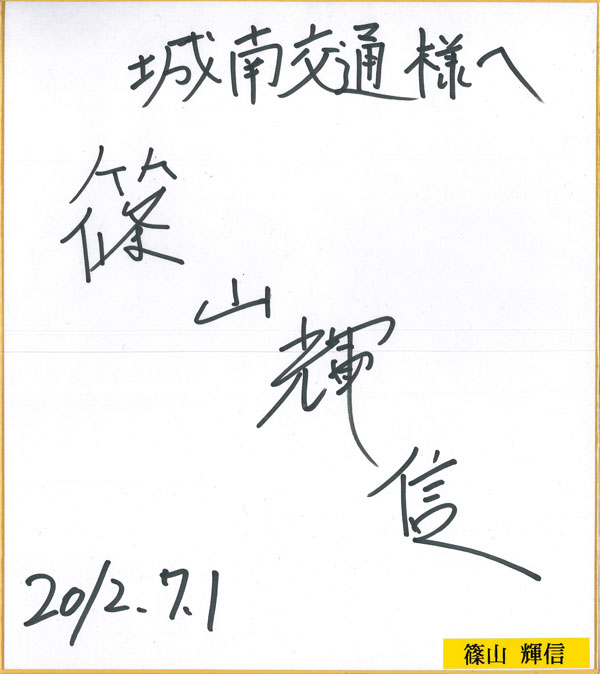 城南交通様へ
篠山輝信
2012.7.1
篠山 輝信